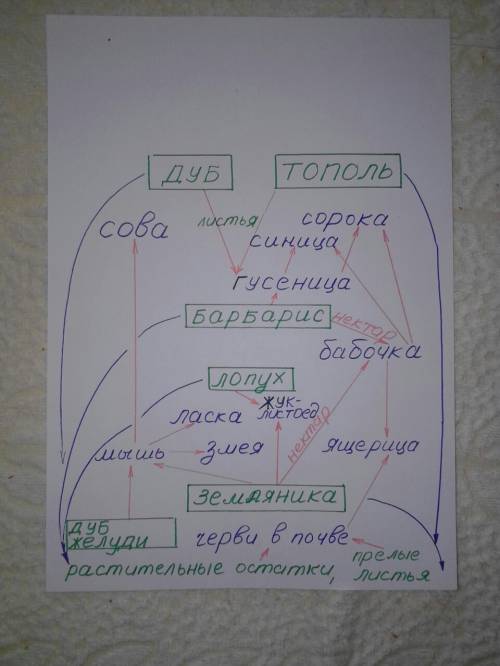 ДУБ ТОПОЛЬ
сова листья сорока
синица
гусеница
БАРБАРИС нектар
бабочка
ЛОПУХ
жук-
ласка листоед
нектар
мышь змея ящерица
ЗЕМЛЯНИКА
ДУБ
ЖЕЛУДИ черви в почве
прелые
растительные остатки, листья